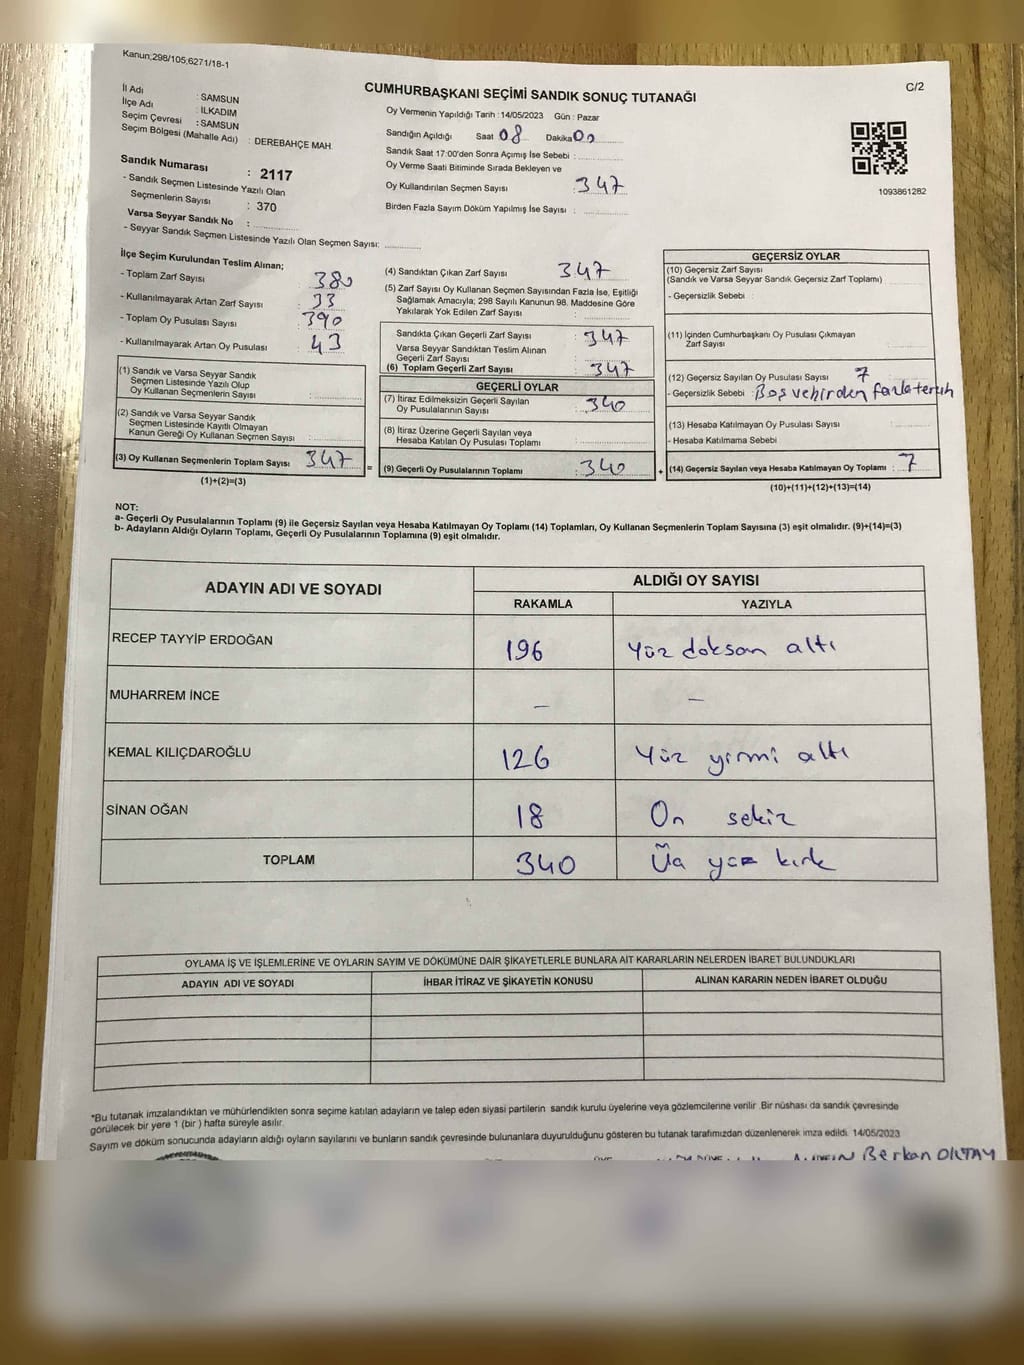 Kanun;298/105;6271/18-1
C/2
CUMHURBAŞKANI SEÇİMİ SANDIK SONUÇ TUTANAĞI
İl Adı : SAMSUN
İlçe Adı : İLKADIM
Seçim Çevresi : SAMSUN
Seçim Bölgesi (Mahalle Adı) : DEREBAHÇE MAH.
Sandık Numarası : 2117
- Sandık Seçmen Listesinde Yazılı Olan
Seçmenlerin Sayısı : 370
Varsa Seyyar Sandık No :
- Seyyar Sandık Seçmen Listesinde Yazılı Olan Seçmen Sayısı:
Oy Vermenin Yapıldığı Tarih : 14/05/2023 Gün : Pazar
Sandığın Açıldığı Saat 08 Dakika 00
Sandık Saat 17:00'den Sonra Açımış İse Sebebi :
Oy Verme Saati Bitiminde Sırada Bekleyen ve
Oy Kullandırılan Seçmen Sayısı : 347
Birden Fazla Sayım Döküm Yapılmış İse Sayısı :
1093861282
İlçe Seçim Kurulundan Teslim Alınan;
- Toplam Zarf Sayısı : 380
- Kullanılmayarak Artan Zarf Sayısı : 33
- Toplam Oy Pusulası Sayısı : 390
- Kullanılmayarak Artan Oy Pusulası : 43
(1) Sandık ve Varsa Seyyar Sandık
Seçmen Listesinde Yazılı Olup
Oy Kullanan Seçmenlerin Sayısı :
(2) Sandık ve Varsa Seyyar Sandık
Seçmen Listesinde Kayıtlı Olmayan
Kanun Gereği Oy Kullanan Seçmen Sayısı :
(3) Oy Kullanan Seçmenlerin Toplam Sayısı : 347
(1)+(2)=(3)
(4) Sandıktan Çıkan Zarf Sayısı : 347
(5) Zarf Sayısı Oy Kullanan Seçmen Sayısından Fazla İse, Eşitliği
Sağlamak Amacıyla; 298 Sayılı Kanunun 98. Maddesine Göre
Yakılarak Yok Edilen Zarf Sayısı :
Sandıkta Çıkan Geçerli Zarf Sayısı : 347
Varsa Seyyar Sandıktan Teslim Alınan
Geçerli Zarf Sayısı :
(6) Toplam Geçerli Zarf Sayısı : 347
GEÇERLİ OYLAR
(7) İtiraz Edilmeksizin Geçerli Sayılan
Oy Pusulalarının Sayısı : 340
(8) İtiraz Üzerine Geçerli Sayılan veya
Hesaba Katılan Oy Pusulası Toplamı :
= (9) Geçerli Oy Pusulalarının Toplamı : 340
GEÇERSİZ OYLAR
(10) Geçersiz Zarf Sayısı
(Sandık ve Varsa Seyyar Sandık Geçersiz Zarf Toplamı) :
- Geçersizlik Sebebi :
(11) İçinden Cumhurbaşkanı Oy Pusulası Çıkmayan
Zarf Sayısı :
(12) Geçersiz Sayılan Oy Pusulası Sayısı : 7
- Geçersizlik Sebebi : Boş ve birden fazla tercih
(13) Hesaba Katılmayan Oy Pusulası Sayısı :
- Hesaba Katılmama Sebebi :
+ (14) Geçersiz Sayılan veya Hesaba Katılmayan Oy Toplamı : 7
(10)+(11)+(12)+(13)=(14)
NOT:
a- Geçerli Oy Pusulalarının Toplamı (9) ile Geçersiz Sayılan veya Hesaba Katılmayan Oy Toplamı (14) Toplamları, Oy Kullanan Seçmenlerin Toplam Sayısına (3) eşit olmalıdır. (9)+(14)=(3)
b- Adayların Aldığı Oyların Toplamı, Geçerli Oy Pusulalarının Toplamına (9) eşit olmalıdır.
ADAYIN ADI VE SOYADI
ALDIĞI OY SAYISI
RAKAMLA YAZIYLA
RECEP TAYYİP ERDOĞAN 196 Yüz doksan altı
MUHARREM İNCE – –
KEMAL KILIÇDAROĞLU 126 Yüz yirmi altı
SİNAN OĞAN 18 On sekiz
TOPLAM 340 Üç yüz kırk
OYLAMA İŞ VE İŞLEMLERİNE VE OYLARIN SAYIM VE DÖKÜMÜNE DAİR ŞİKAYETLERLE BUNLARA AİT KARARLARIN NELERDEN İBARET BULUNDUKLARI
ADAYIN ADI VE SOYADI İHBAR İTİRAZ VE ŞİKAYETİN KONUSU ALINAN KARARIN NEDEN İBARET OLDUĞU
*Bu tutanak imzalandıktan ve mühürlendikten sonra seçime katılan adayların ve talep eden siyasi partilerin sandık kurulu üyelerine veya gözlemcilerine verilir .Bir nüshası da sandık çevresinde
görülecek bir yere 1 (bir ) hafta süreyle asılır.
Sayım ve döküm sonucunda adayların aldığı oyların sayılarını ve bunların sandık çevresinde bulunanlara duyurulduğunu gösteren bu tutanak tarafımızdan düzenlenerek imza edildi. 14/05/2023
Berkan OKTAY